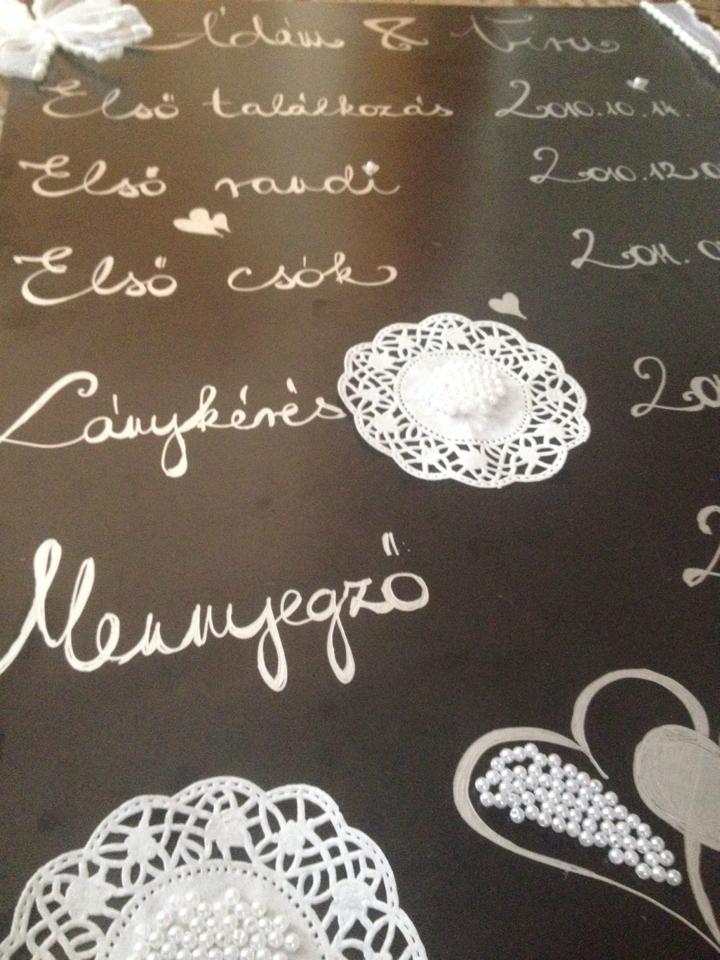 Ádám & Vera
Első találkozás 2010.10.14.
Első randi 2010.12.0
Első csók 2011.0
Lánykérés 20
Mennyegző 2